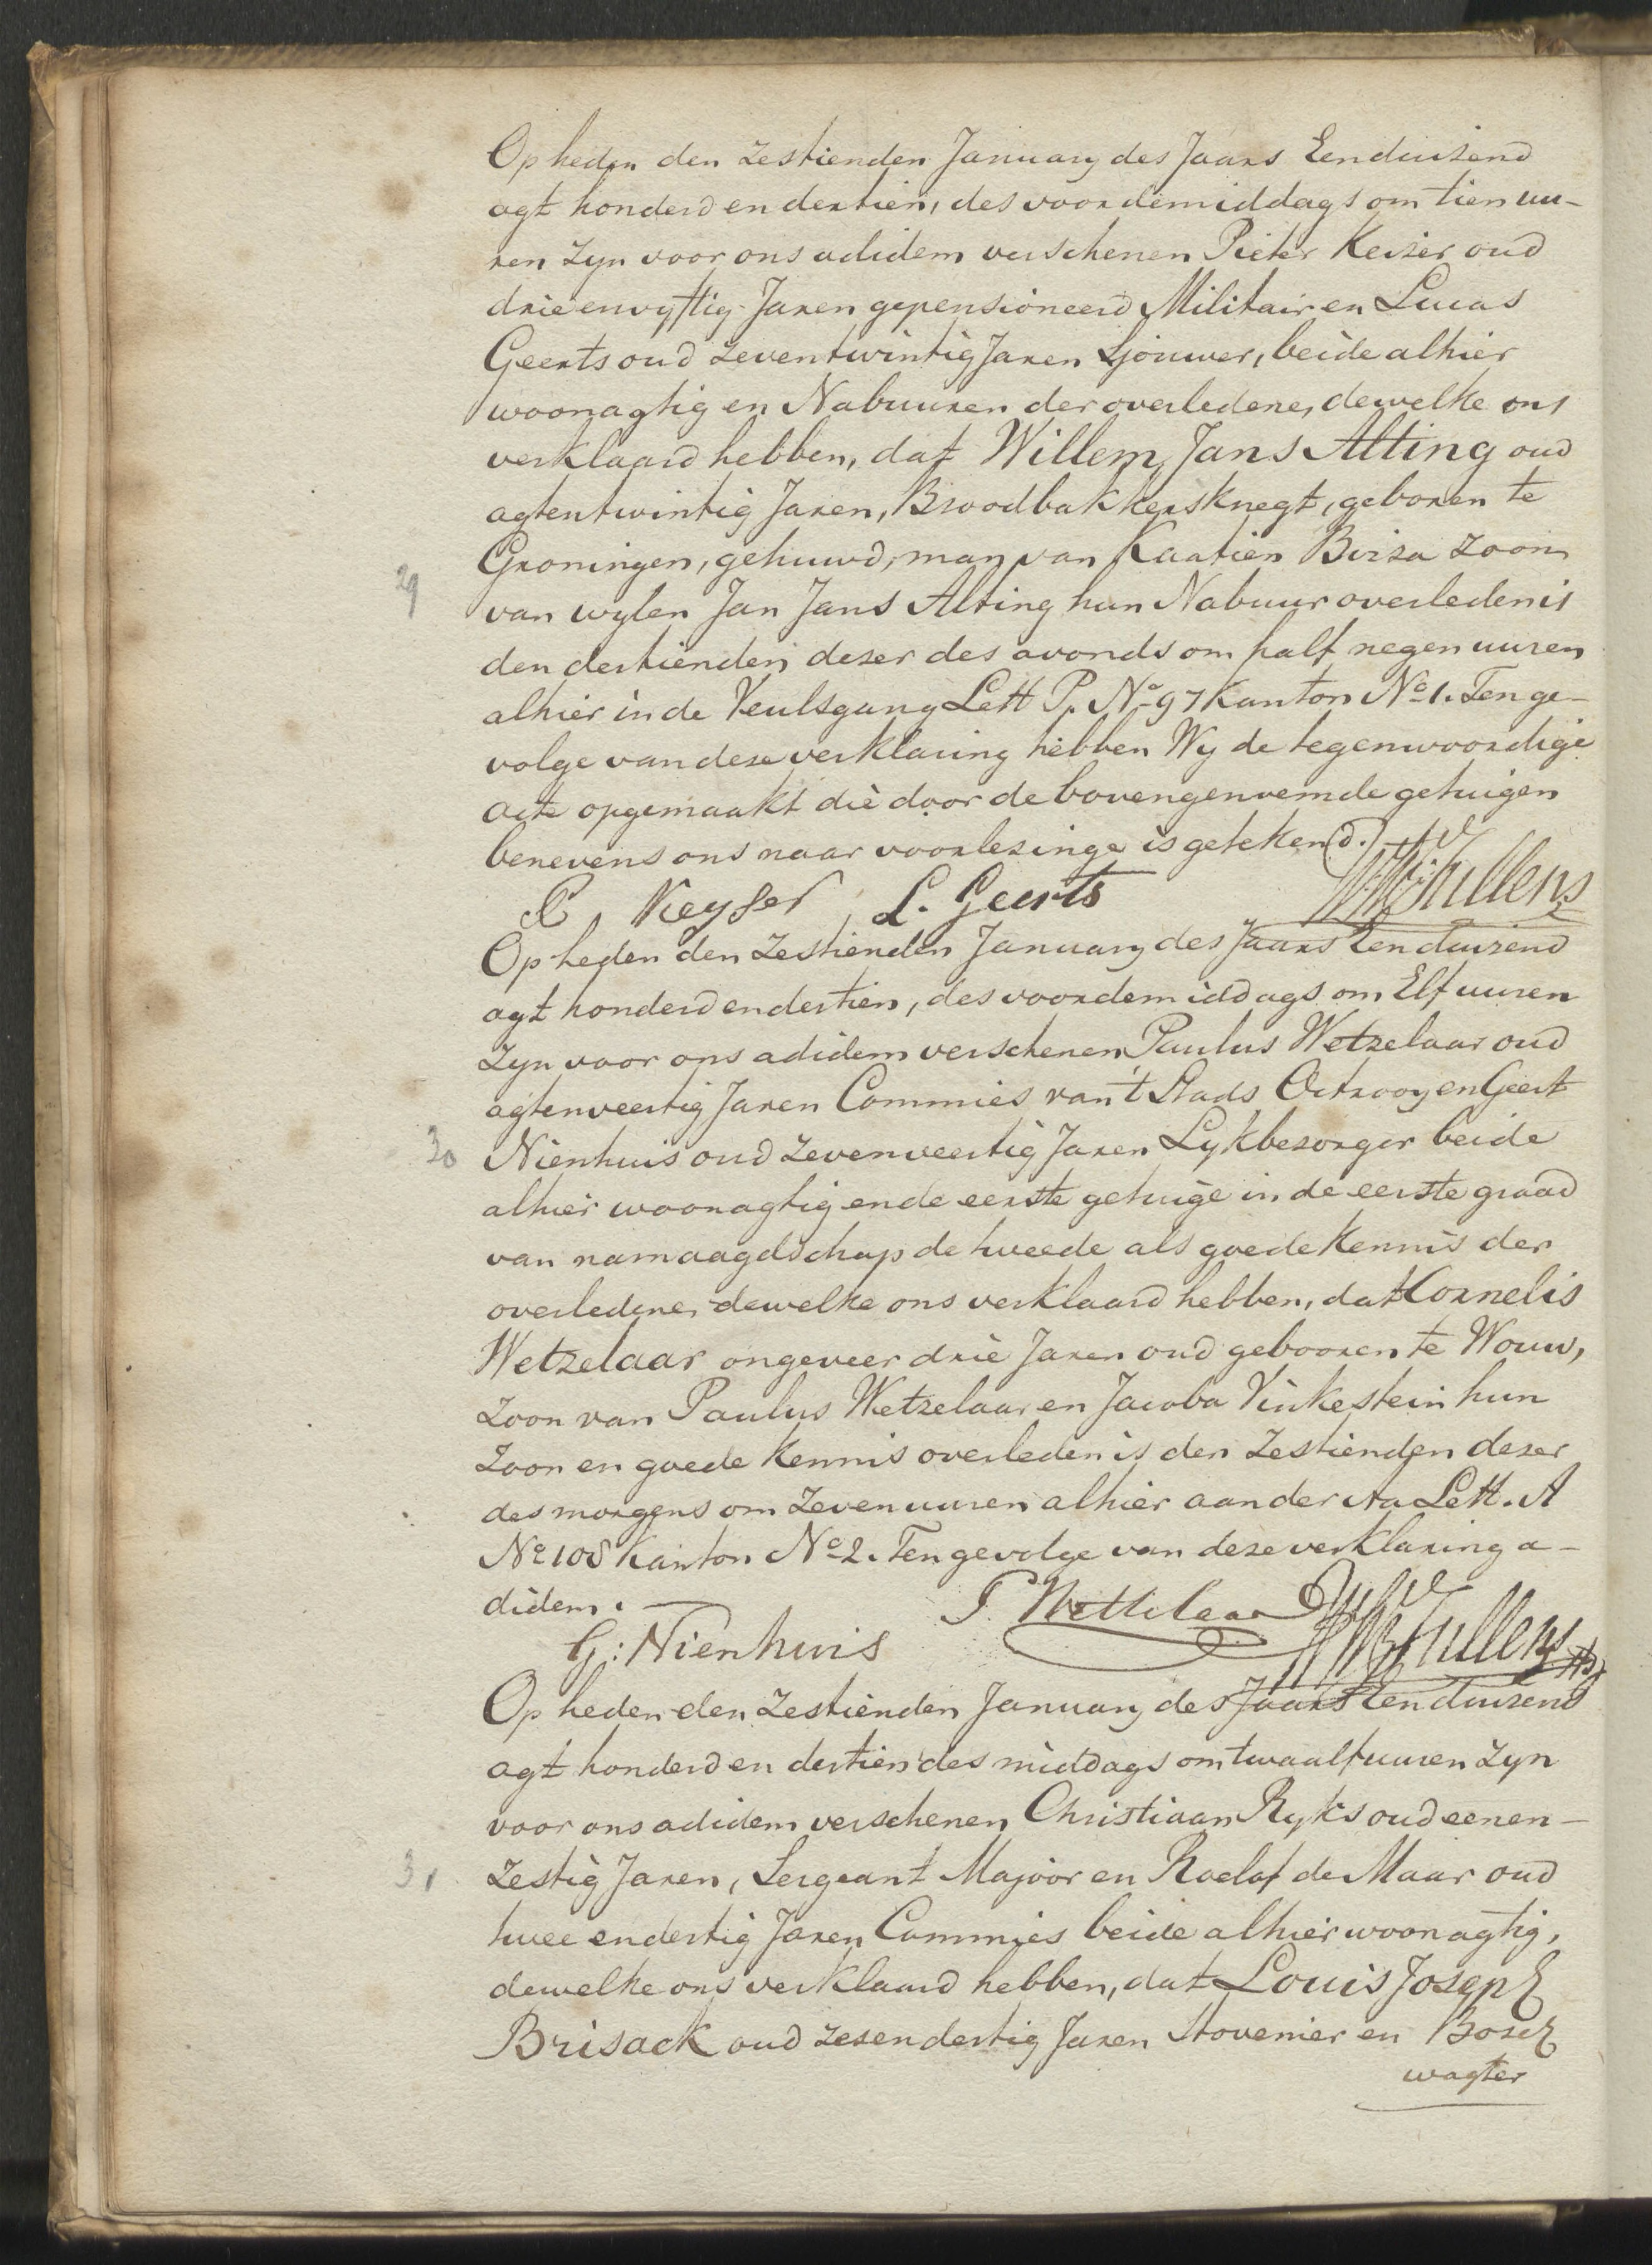 Op heden den zestienden January des Jaars Eenduizend
agt honderd en dertien, des voordemiddags om tien uu-
ren zyn voor ons adidem verschenen Pieter Keizer oud
drieenvyftig Jaren gepensioneerd Militair en Lucas
Geerts oud zeventwintig Jaren Sjouwer, beide alhier
woonagtig en Nabuuren der overledene, dewelke ons
verklaard hebben, dat Willem Jans Alting oud
agtentwintig Jaren, Broodbakkersknegt, geboren te
Groningen, gehuwd, man van Kaatien Buiza zoon
29
van wylen Jan Jans Alting hun Nabuur overleden is
den dertienden dezer des avonds om half negen uuren
alhier in de Keulsgang Lett P. No 97 Kanton No 1. Ten ge-
volge van deze verklaring hebben Wy de tegenwoordige
acte opgemaakt die door de bovengenoemde getuigen
benevens ons naar voorlezinge is getekend.
P Keyser L. Geerts
Op heden den zestienden January des Jaars Eenduizend
agt honderd en dertien, des voordemiddags om Elf uuren
zyn voor ons adidem verschenen Paulus Wetzelaar oud
agtenveertig Jaren Commies van 't Stads Octrooy en Geert
30 Nienhuis oud zevenveertig Jaren Lykbezorger beide
alhier woonagtig en de eerste getuige in de eerste graad
van namaagdschap de tweede als goede Kennis der
overledene, dewelke ons verklaard hebben, dat Cornelis
Wetzelaar ongeveer drie Jaren oud gebooren te Wouw,
zoon van Paulus Wetzelaar en Jacoba Vinkestein hun
zoon en goede Kennis overleden is den zestienden dezer
des morgens om zeven uuren alhier aan der Aa Lett. A
No 108 Kanton No 2. Ten gevolge van deze verklaring a-
didem.
P. Wettelaar
G: Nienhuis
Op heden den zestienden January des Jaars Eenduizend
agt honderd en dertien des middags om twaalf uuren zyn
voor ons adidem verschenen Christiaan Ryks oud eenen-
31 zestig Jaren, Sergeant Majoor en Roelof de Maar oud
twee endertig Jaren Commies beide alhier woonagtig,
dewelke ons verklaard hebben, dat Louis Joseph
Brisack oud zesendertig Jaren Hovenier en Bosch
wagter